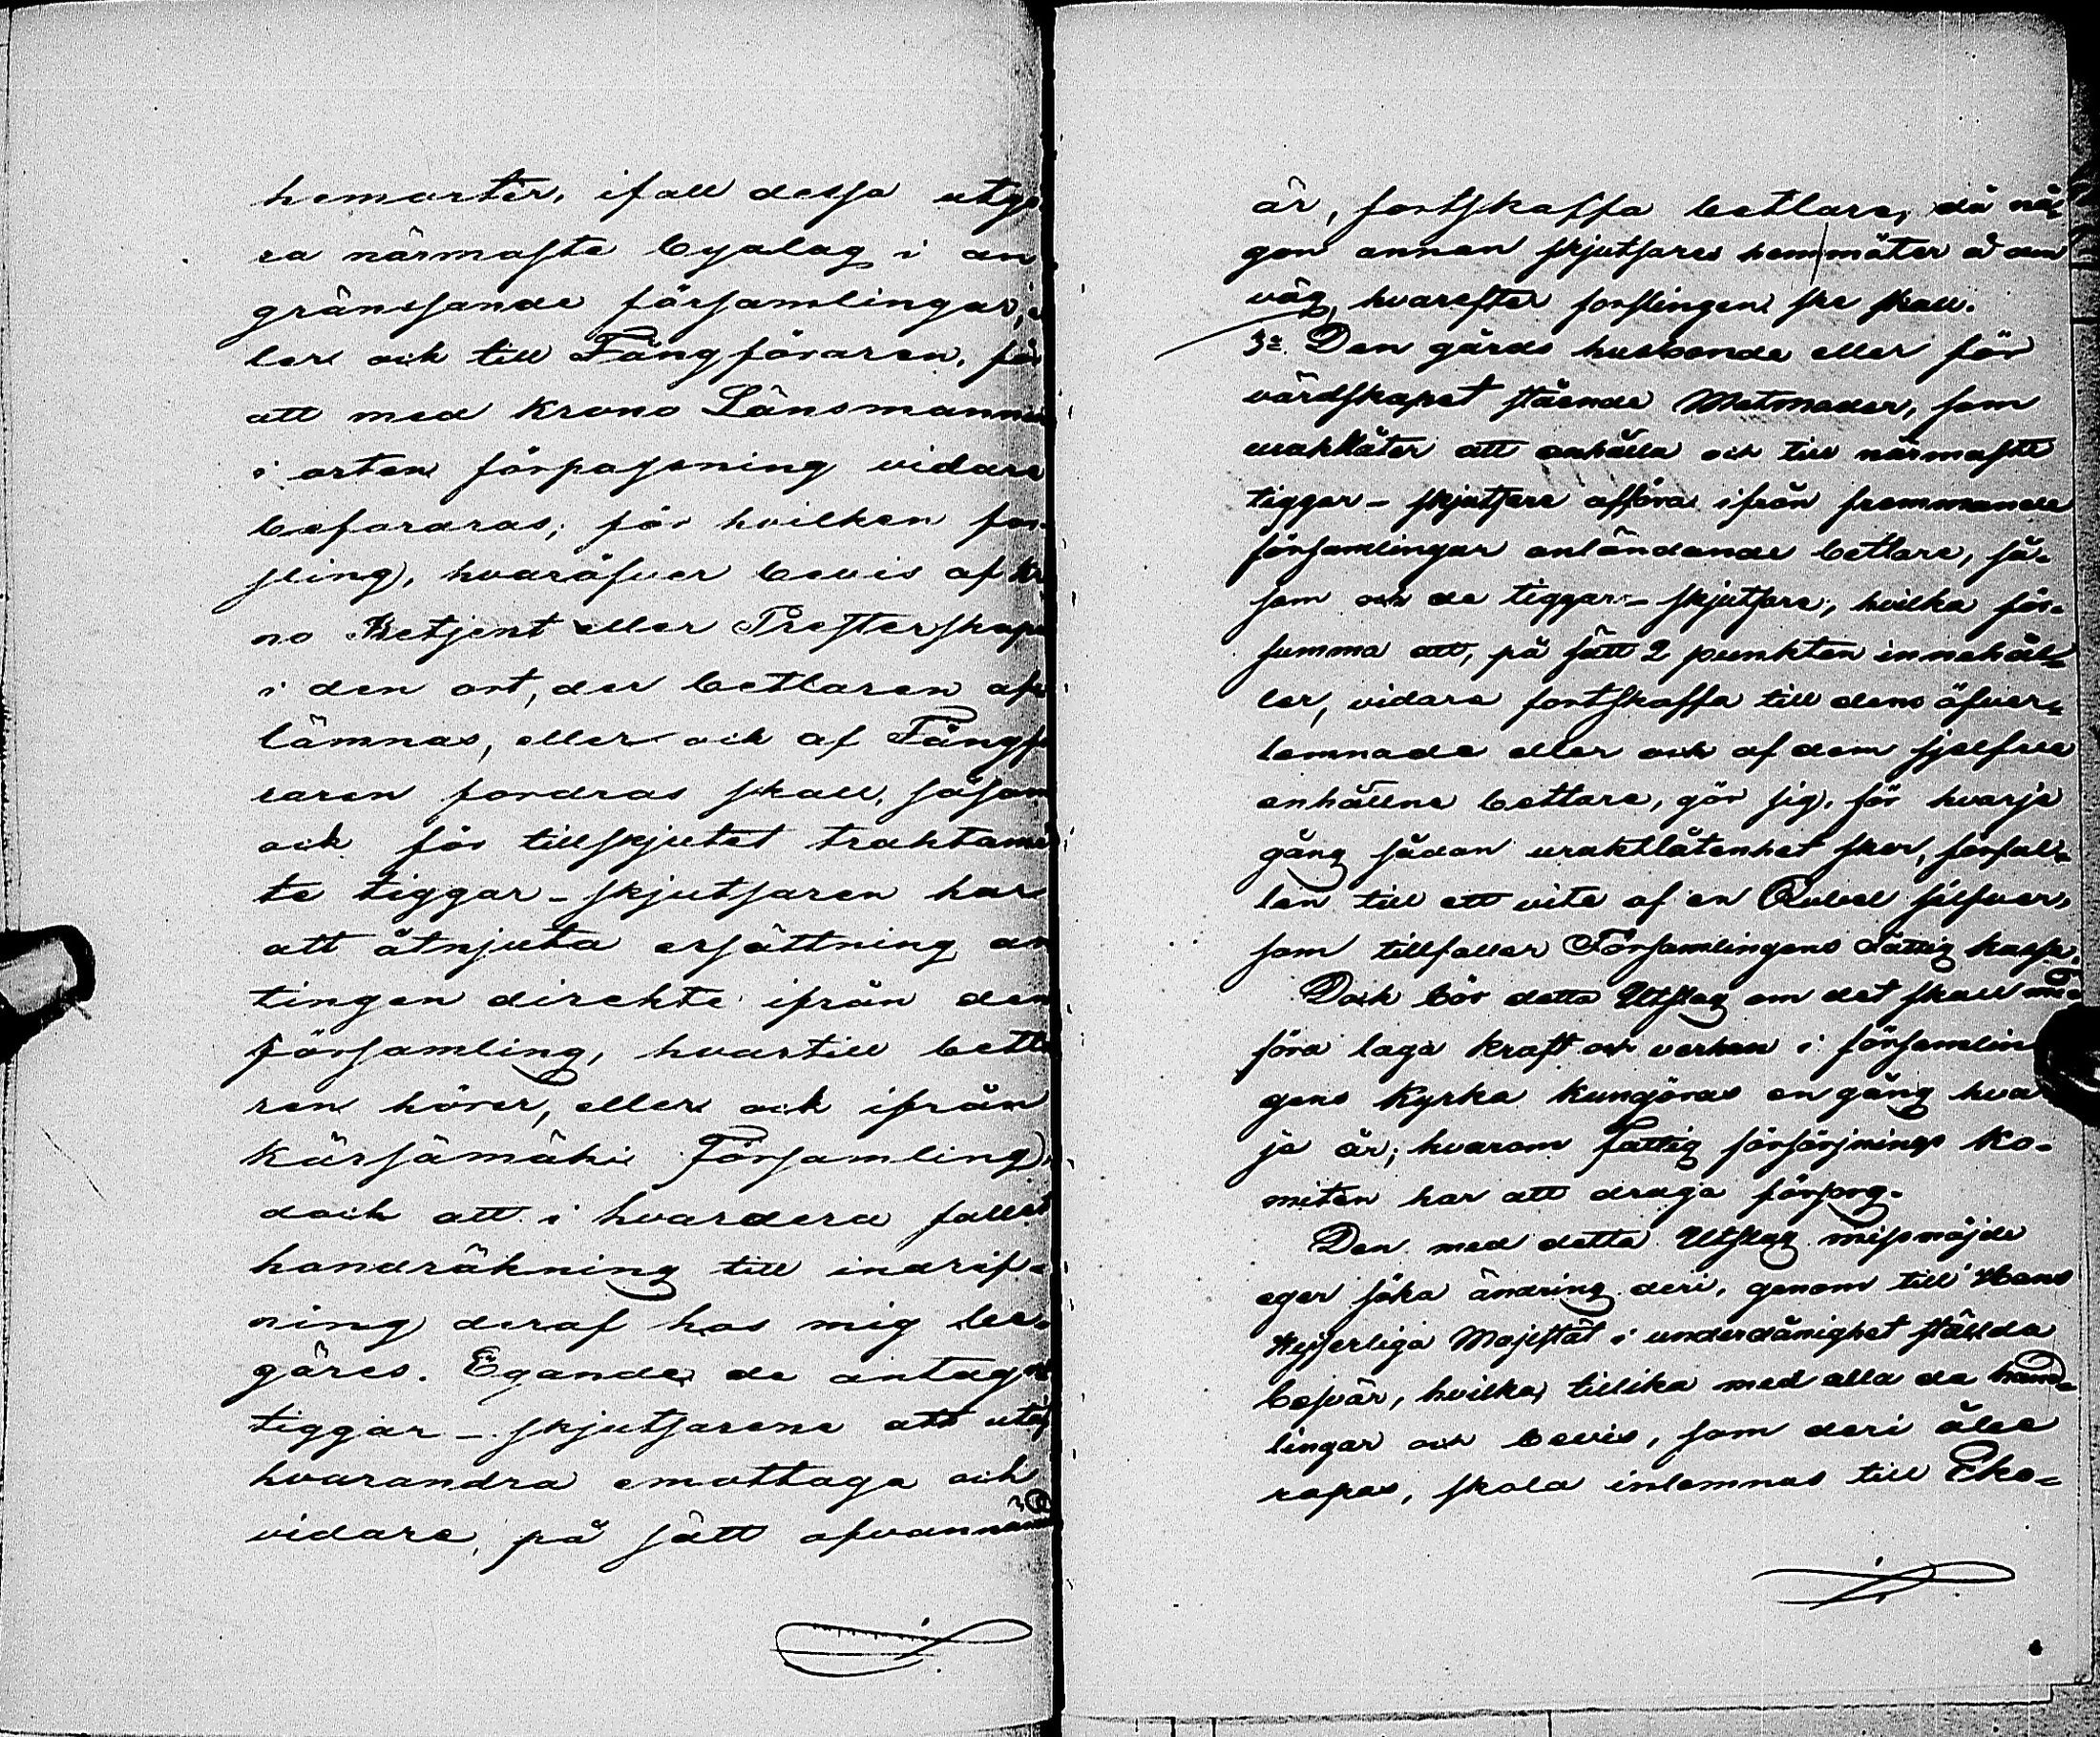 hemorter, ifall dessa utgö
ra närmaste byalag i an
gränsande församlingar, e
ler och till Fångföraren, för
att med Krono Länsmannen
i orten förpassning vidare
befordras; för hvilken for-
sling, hvaröfver bevis af Kr
no Betjent eller Presterskape
i den ort, der betlaren af
lämnas, eller och af Fångfö
raren fordras skall, såsom
och för tillskjutet traktamen
te tiggar-skjutsaren har
att åtnjuta ersättning an
tingen direkte ifrån den
församling, hvartill betla
ren hörer, eller och ifrån
Kärsämäki Församling,
dock att i hvardera fallet
handräkning till indrif-
ning deraf hos mig be-
gäres. Egande de antagne
tiggar-skjutsarene att utaf
hvarandra emottaga och
vidare, på sätt ofvannämdt
är, fortskaffa betlare, då nå-
gon annan skjutsares hem möter å den
väg, hvarefter forslingen ske skall.
3:o Den gårds husbonde eller för
värdskapet stående Matmoder, som
uraktlåter att anhålla och till närmaste
tiggar-skjutsare afföra ifrån fremmande
församlingar anländande betlare, så-
som och de tiggar-skjutsare, hvilka för-
summa att, på sätt 2 punkten innehål-
ler, vidare fortskaffa till dem öfver-
lemnade eller och af dem sjelfve
anhållne betlare, gör sig, för hvarje
gång sådan uraktlåtenhet sker, förfal-
len till ett vite af en Rubel silfver,
som tillfaller Församlingens Fattig kassa.
Dock bör detta Utslag om det skall med-
föra laga kraft och verkan i församlin
gens Kyrka kungöras en gång hvar
je år; hvarom Fattig försörjnings Ko-
miten har att draga försorg.
Den med detta Utslag missnöjde
eger söka ändring deri, genom till Hans
Kejserliga Majestät i underdånighet ställda
besvär, hvilka, tillika med alla de hand-
lingar och bevis, som deri åbe
ropas, skola inlemnas till Eko-